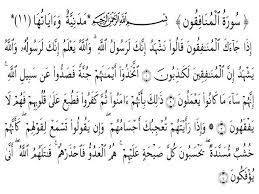 ﴿ سُورَةُ الْمُنَافِقُونَ ﴾ بِسْمِ اللَّهِ الرَّحْمَٰنِ الرَّحِيمِ *مَدَنِيَّةٌ وَءَايَاتُهَا (١١)*
إِذَا جَآءَكَ الْمُنَٰفِقُونَ قَالُوا۟ نَشْهَدُ إِنَّكَ لَرَسُولُ اللَّهِ ۗ وَاللَّهُ يَعْلَمُ إِنَّكَ لَرَسُولُهُۥ وَاللَّهُ
يَشْهَدُ إِنَّ الْمُنَٰفِقِينَ لَكَٰذِبُونَ ۝ اتَّخَذُوٓا۟ أَيْمَٰنَهُمْ جُنَّةً فَصَدُّوا۟ عَن سَبِيلِ اللَّهِ ۚ
إِنَّهُمْ سَآءَ مَا كَانُوا۟ يَعْمَلُونَ ۝ ذَٰلِكَ بِأَنَّهُمْ ءَامَنُوا۟ ثُمَّ كَفَرُوا۟ فَطُبِعَ عَلَىٰ قُلُوبِهِمْ فَهُمْ لَا
يَفْقَهُونَ ۝ وَإِذَا رَأَيْتَهُمْ تُعْجِبُكَ أَجْسَامُهُمْ ۖ وَإِن يَقُولُوا۟ تَسْمَعْ لِقَوْلِهِمْ ۖ كَأَنَّهُمْ
خُشُبٌ مُّسَنَّدَةٌ ۖ يَحْسَبُونَ كُلَّ صَيْحَةٍ عَلَيْهِمْ ۚ هُمُ الْعَدُوُّ فَاحْذَرْهُمْ ۚ قَٰتَلَهُمُ اللَّهُ ۖ أَنَّىٰ
يُؤْفَكُونَ ۝